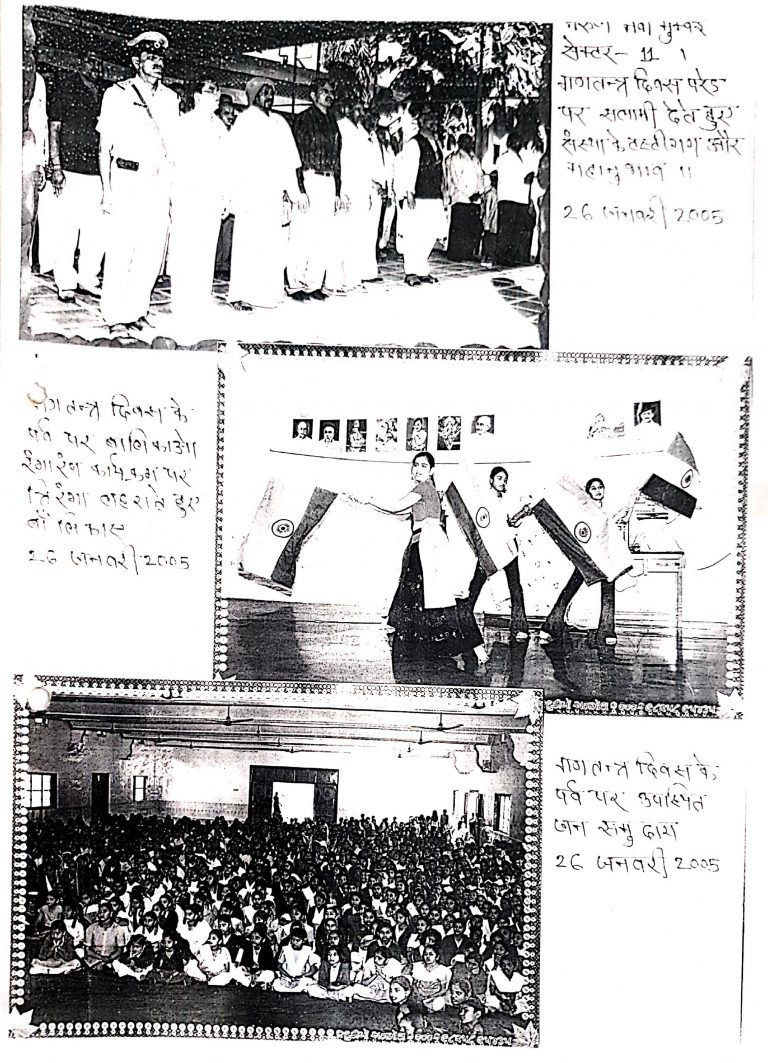 नेरूल नवी मुम्बई
सेक्टर- 11 ।
गणतन्त्र दिवस परेड
पर सलामी देते हुए
संस्था के ट्रस्टीगण और
महानुभाव ।।
26 जनवरी 2005
गणतन्त्र दिवस के
पर्व पर बालिकाओ
रंगारंग कार्यक्रम पर
तिरंगा लहराते हुए
बालिकाएं
26 जनवरी 2005
गणतन्त्र दिवस के
पर्व पर उपस्थित
जन समुदाय
26 जनवरी 2005